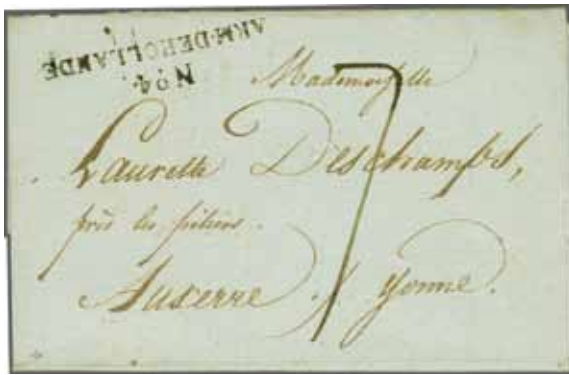 Nº 4.
ARM. DE HOLLANDE
Mademoiselle
Laurette Deschamps,
près les
Auxerre Yonne.
7